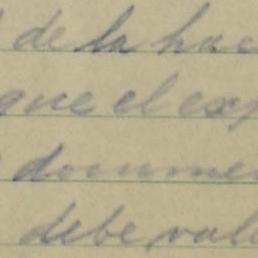 de la hac
que el exp
documen
debe vale